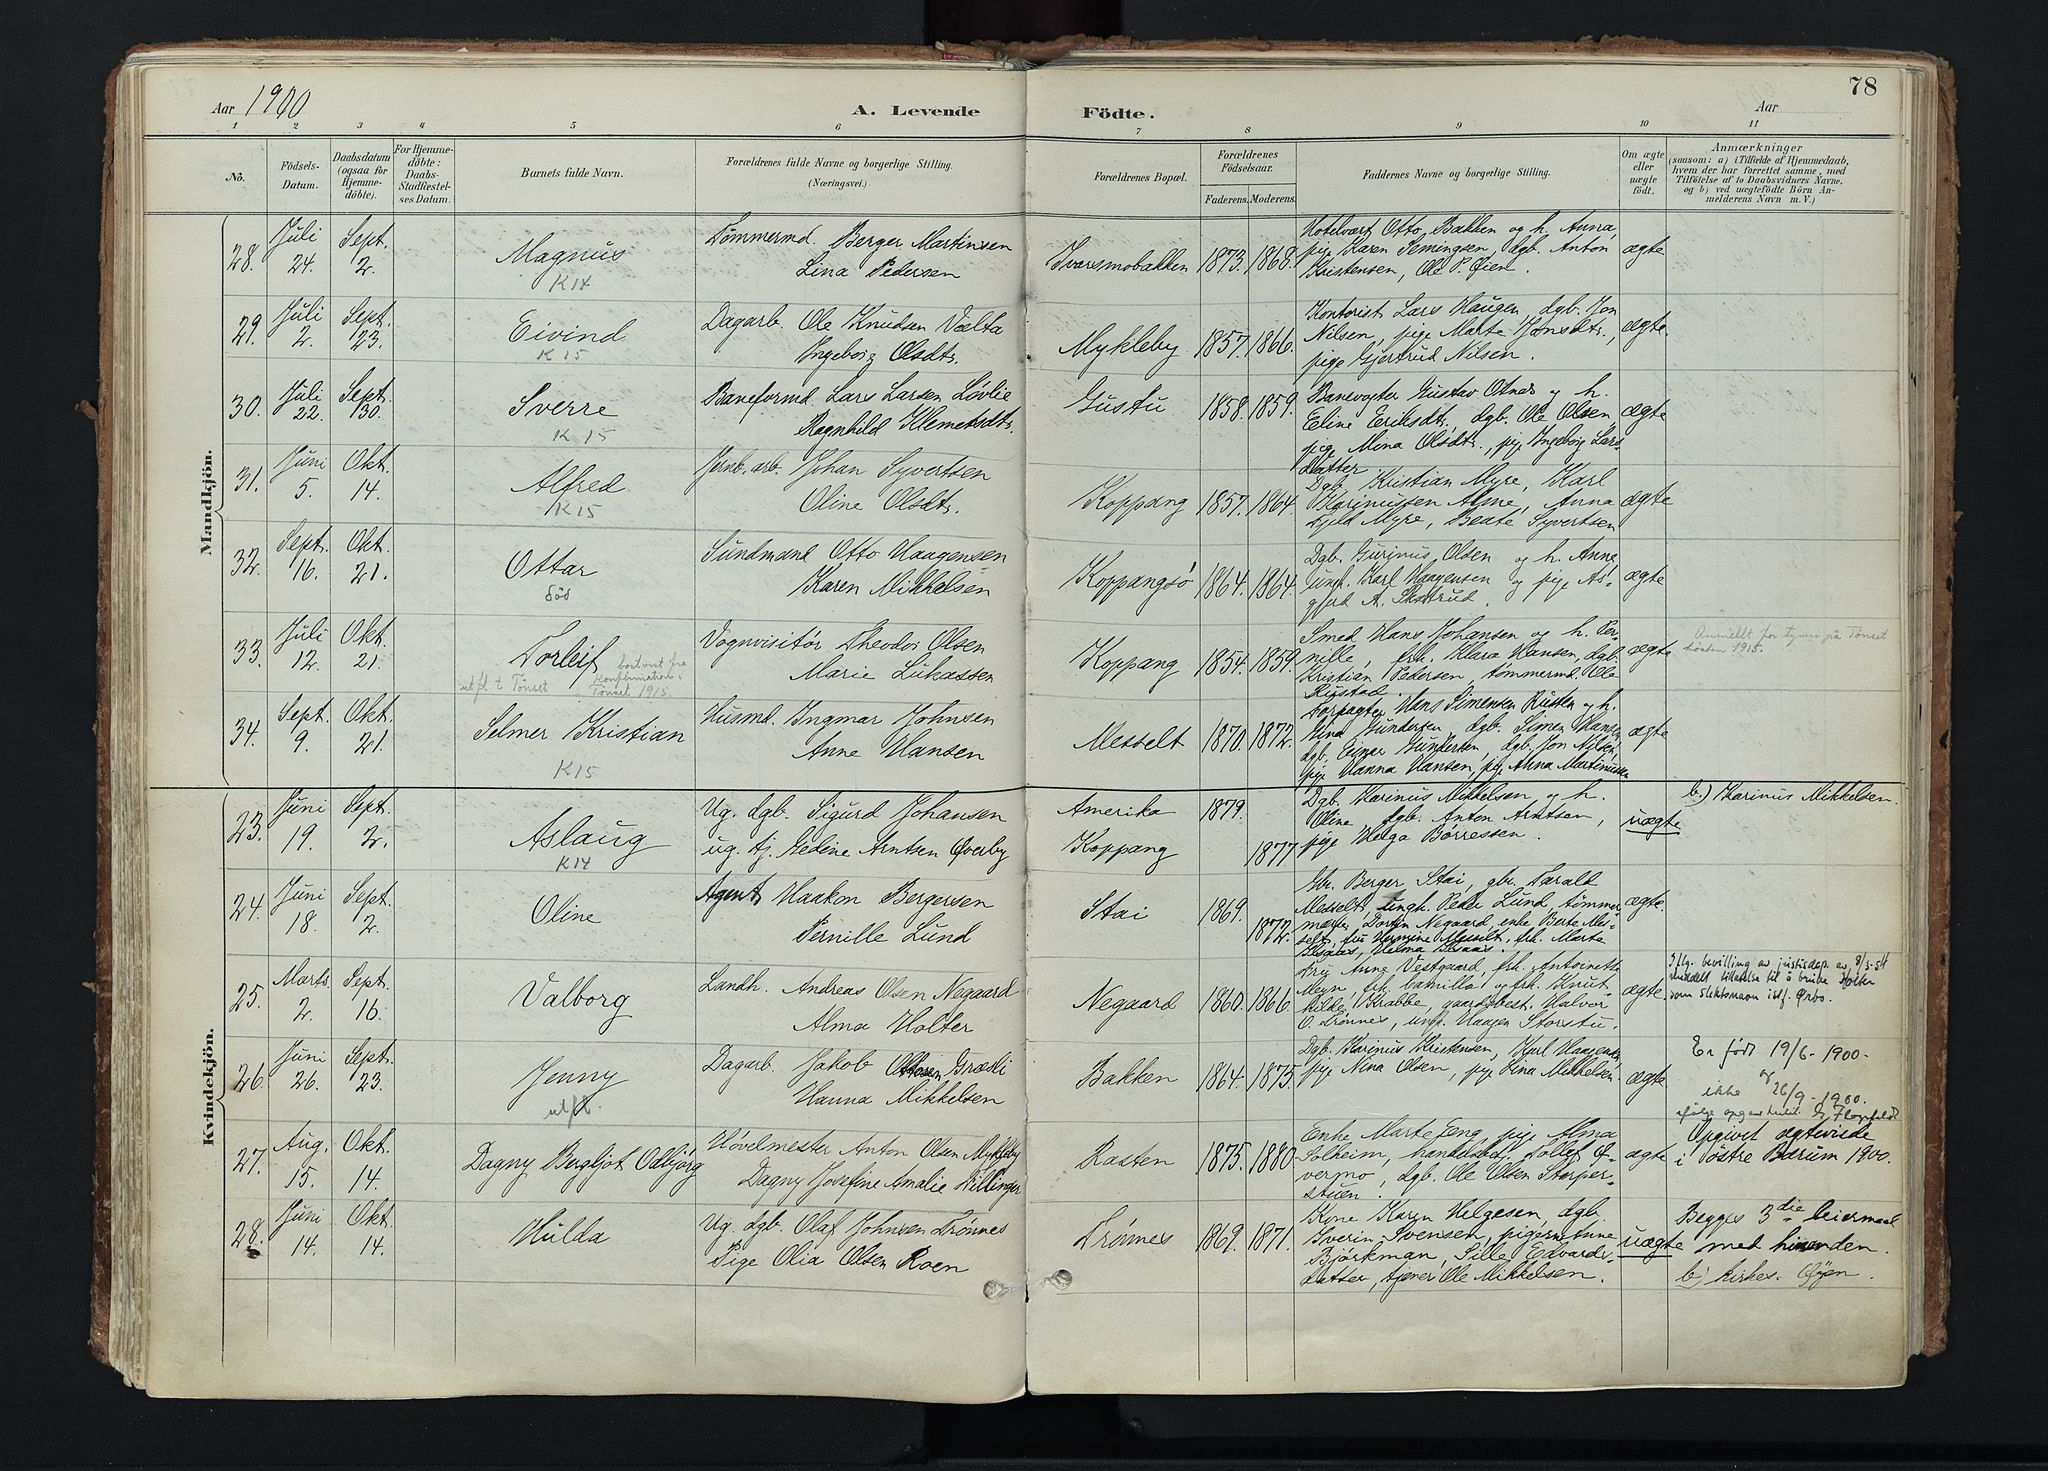 78
Aar 1900
A. Levende Födte.
Aar
1 2 3 4 5 6 7 8 9 10 11
No.
Födsels-Datum.
Daabsdatum (ogsaa for Hjemmedöbte).
For Hjemmedöbte: Daabs-Stadfæstelses Datum.
Barnets fulde Navn.
Forældrenes fulde Navne og borgerlige Stilling. (Næringsvei.)
Forældrenes Bopæl.
Forældrenes Födselsaar.
Faderens. Moderens.
Faddernes Navne og borgerlige Stilling.
Om ægte eller uægte födt.
Anmærkninger
(saasom: a) i Tilfælde af Hjemmedaab, hvem der har forrettet samme, med Tilföielse af to Daabsvidners Navne, og b) ved uægtefödte Börn Anmelderens Navn m. V.)
Mandkjön.
28. Juli 24. Sept. 2. Magnus K 14
Tømmermd. Berger Martinsen
Lina Pedersen
Ivarsmobakken 1873. 1868.
Hotelvært Otto Bakken og h. Anna,
pige Karen Semingsen, dgb. Anton
Kristensen, Ole P. Øien.
ægte
29. Juli 2. Sept. 23. Eivind K 15
Dagarb. Ole Knudsen Vælta
Ingeborg Olsdtr.
Mykleby 1857. 1866.
Kontorist Lars Haugen, dgb. Jon
Nilsen, pige Marte Jonsdtr.,
pige Gjertrud Nilsen.
ægte.
30. Juli 22. Sept. 30. Sverre K 15
Baneformd Lars Larsen Løvlie
Ragnhild Klemetsdtr.
Gustu 1858. 1859.
Banevogter Gustav Otnes og h.
Eline Eriksdtr., dgb. Ole Olsen,
pige Mina Olsdtr., pige Ingeborg Lars
datter.
ægte
31. Juni 5. Okt. 14. Alfred K 15
Jernb. arb. Johan Syvertsen
Oline Olsdtr.
Koppang 1857. 1864.
Dgb. Kristian Myre, Karl
Karinussen Alme, Anna
Kjeld Myre, Beate Syvertsen
ægte
32. Sept. 16. Okt. 21. Ottar død
Sundmand Otto Haagensen
Karen Mikkelsen
Koppangsø 1864. 1864.
Dgb. Gurinus Olsen og h. Anne,
und. Karl Haagensen og pige As-
gjerd A. Skotrud.
ægte
33. Juli 12. Okt. 21. Torleif
utfl. t. Tönset
bortvist fra Konfirmationen i Tönset 1915.
Vognvisitør Theodor Olsen
Marie Lukassen
Koppang 1854. 1859.
Smed Hans Johansen og h. Per-
nille, frk. Klara Hansen, dgb.
Kristian Pedersen, tømmermd. Ole
Rustad.
ægte
Anmeldt for tyveri på Tönset
høsten 1915.
34. Sept. 9. Okt. 21. Selmer Kristian K15
Husmd. Ingmar Johnsen
Anne Hansen
Messelt 1870. 1872.
Forpagter Hans Simensen Rusten og h.
Gina Gundersen, dgb. Simen Hansen,
dgb. Einar Gundersen, dgb. Jon Nilsen,
pige Hanna Hansen, pige Anna Martinussen
ægte
Kvindekjön.
23. Juni 19. Sept. 2. Aslaug K14
Ug. dgb. Sigurd Johansen
ug. tj. Hedine Arntsen Øverby
Amerika 1879.
Koppang 1877.
Dgb. Karinus Mikkelsen og h.
Oline, dgb. Anton Arntsen,
pige Helga Børressen.
uægte
b.) Karinus Mikkelsen.
24. Juni 18. Sept. 2. Oline
Agent Haakon Bergersen
Pernille Lund
Stai 1869. 1872.
Gbr. Berger Stai, gbr. Taralt
Messelt, ungk. Peder Lund, tømmer-
mærker Dortin Negaard, enke Berte Mes-
selt, fru Hermine Messelt, frk. Marte
ægte.
25. Marts 2. Sept. 16. Valborg
Landh. Andreas Olsen Negaard
Alma Holter
Negaard 1860. 1866.
Frk. Anne Vestgaard, frk. Antoinette
Meyn, frk. Camilla og frk. Knut-
hilde Krabbe, gaardsbest. Halvor
O. Trønnes, ungk. Haagen Storstu.
ægte
Iflg. bevilling av justisdep. av 8/3-54
meddelt tillatelse til å bruke Holter
som slektsnavn istf. Ørbo.
26. Juni 26. Sept. 23. Jenny utfl.
Dagarb. Jakob Ottosen Græsli
Hanna Mikkelsen
Bakken 1864. 1875.
Dgb. Karinus Kristensen, Karl Haagensen,
pige Nina Olsen, pige Lina Mikkelsen
ægte
Er født 19/6-1900
og ikke 26/9-1900.
27. Aug. 15. Okt. 14. Dagny Bergljot Odbjørg
Høvelmester Anton Olsen Mykleby
Dagny Josefine Amalie Dillinger
Kasten 1875. 1880
Enke Marte Eng, pige Alma
Solheim, handelsbetj. Tollef Ø-
vermo, dgb. Ole Olsen Storper-
stuen.
ægte
Opgivet ægteviede
i Østre Bærum 1900.
28. Juni 14. Okt. 14. Hulda
Ug. dgb. Olaf Johnsen Trønnes
Pige Olia Olsen Roen
Trønnes 1869. 1871.
Kone Karen Helgesen, dgb.
Sverin Svensen, pigerne Anne
Bjørkman, Sille Edvards-
datter, tjener Ole Mikkelsen.
uægte
Begges 3die leiermaal
med hinanden.
b) kirkes. Øyen.